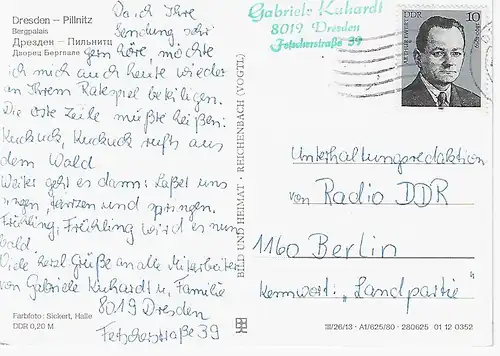 Dresden – Pillnitz
Bergpalais
Дрезден – Пильниц
Дворец Бергпале
Da ich Ihre
Sendung sehr
gern höre, möchte
ich mich auch heute wieder
an Ihrem Ratespiel beteiligen.
Die erste Zeile müßte heißen:
Kuckuck, Kuckuck rufts aus
dem Wald.
Weiter geht es dann: Laßet uns
singen, tanzen und springen.
Frühling, Frühling wird es nun
bald.
Viele herzl. Grüße an alle Mitarbeiter
von Gabriele Kuhardt u. Familie
8019 Dresden
Fetscherstraße 39
Farbfoto: Sickert, Halle
DDR 0,20 M
BILD UND HEIMAT · REICHENBACH (VOGTL)
Gabriele Kuhardt
8019 Dresden
Fetscherstraße 39
DDR 10
Unterhaltungsredaktion
von Radio DDR
1160 Berlin
Kennwort: „Landpartie"
III/26/13 · A1/625/80 · 280625 01 12 0352